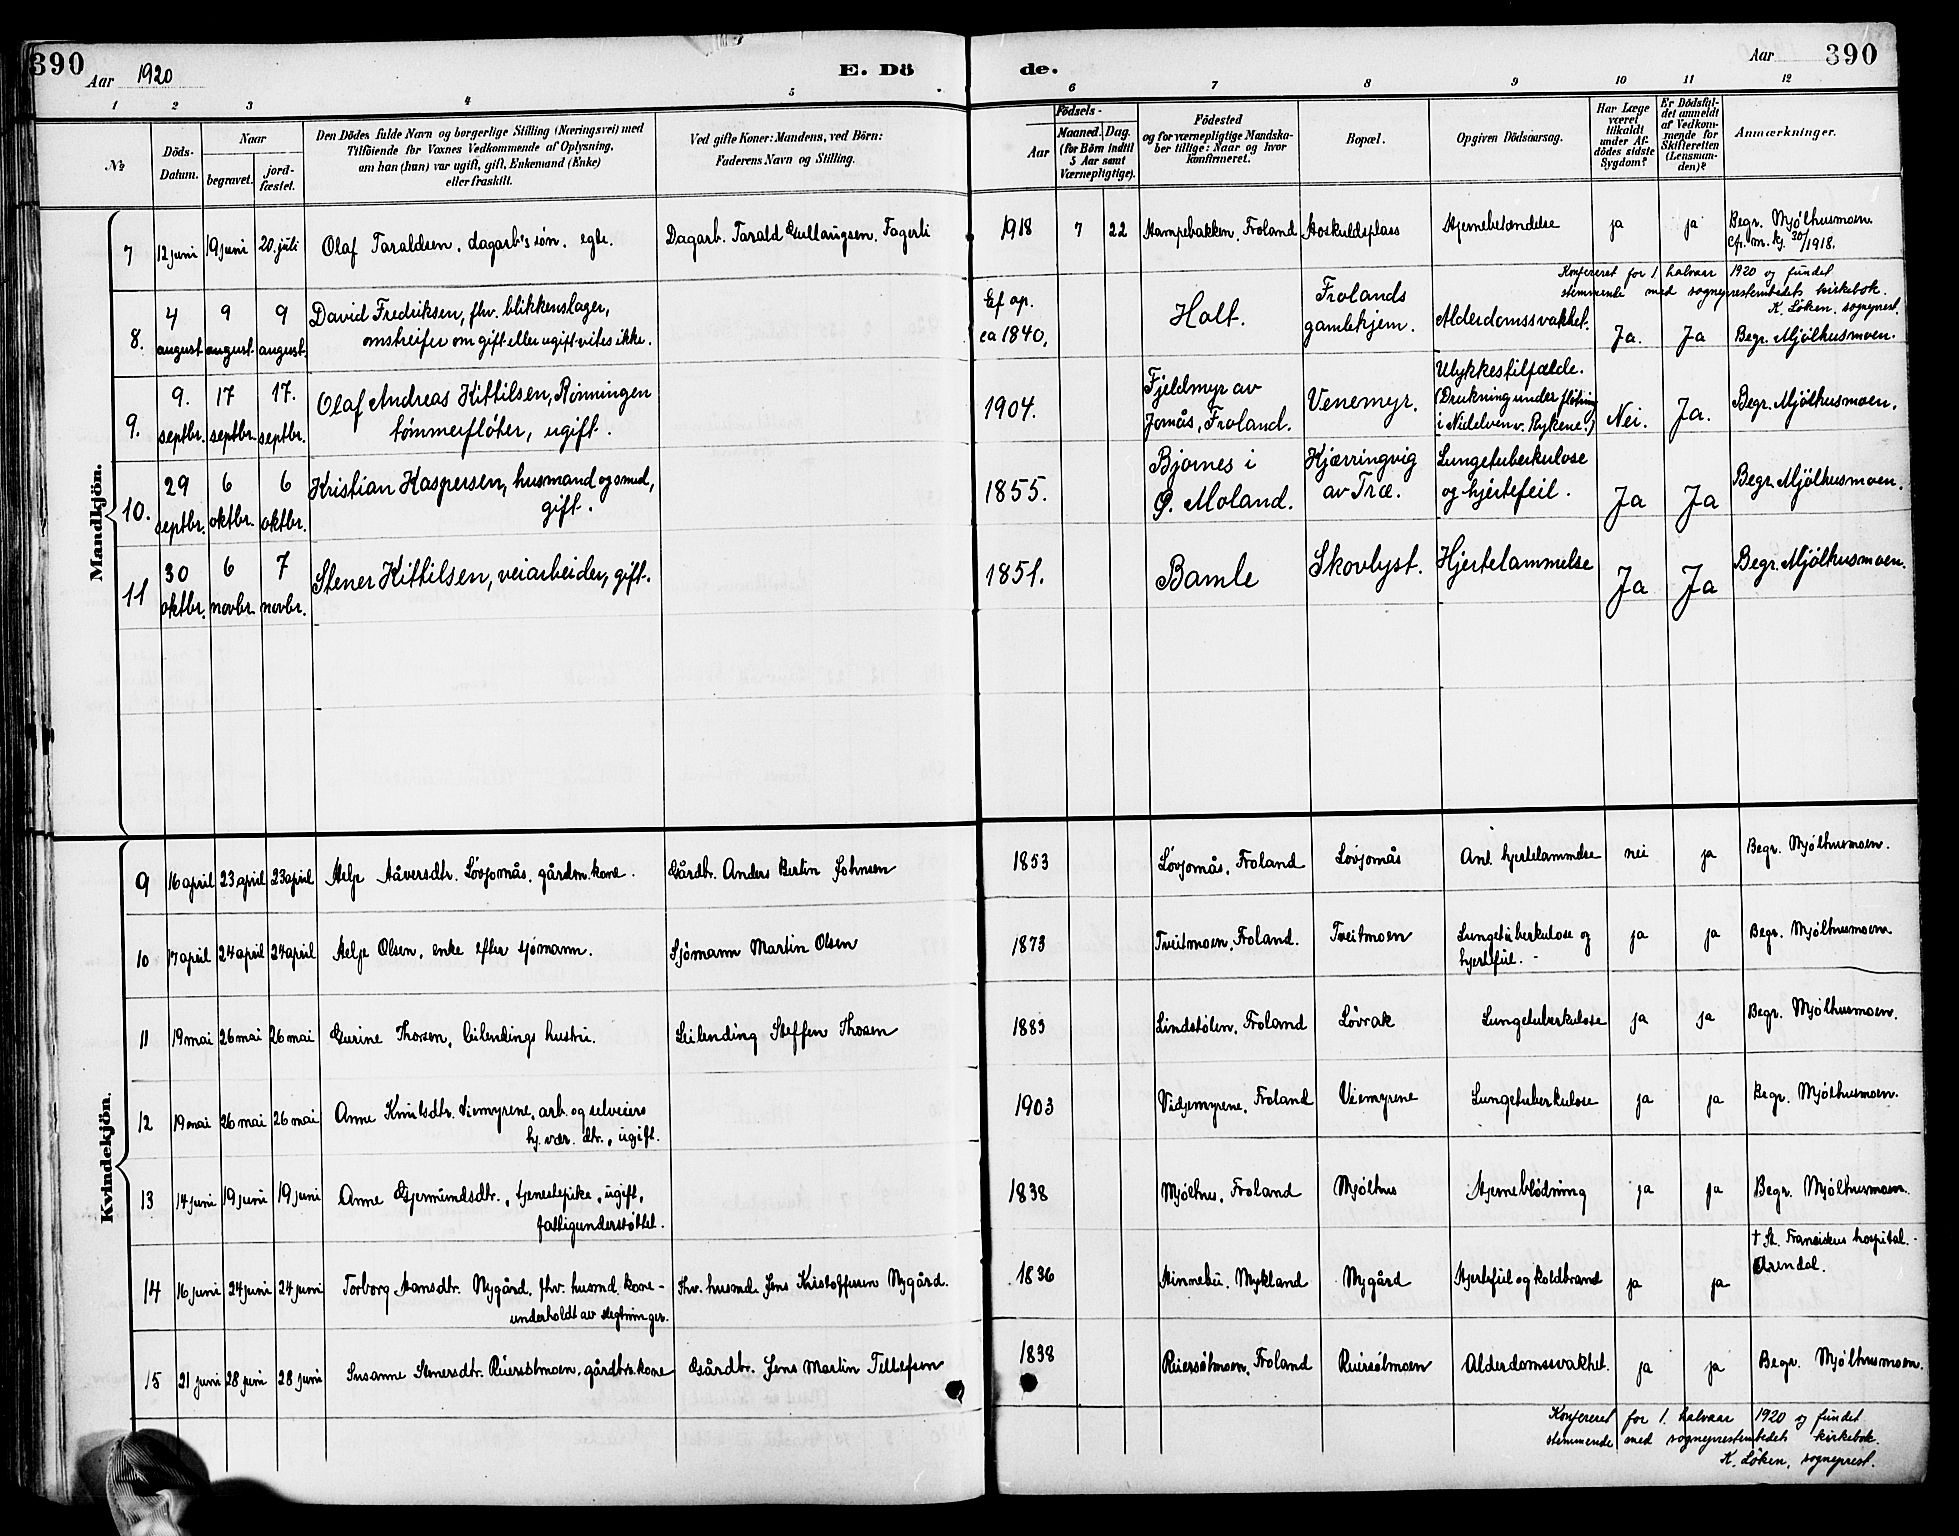 390 Aar 1920 E. Dö de. Aar 390
1 2 3 4 5 6 7 8 9 10 11 12
No
Döds-Datum.
Naar
begravet.
jord-fæstet.
Den Dödes fulde Navn og borgerlige Stilling (Næringsvei) med
Tilföiende for Voxnes Vedkommende af Oplysning,
om han (hun) var ugift, gift, Enkemand (Enke)
eller fraskilt.
Ved gifte Koner: Mandens, ved Börn:
Faderens Navn og Stilling.
Födsels-
Aar
Maaned. Dag.
(for Börn indtil
5 Aar samt
Værnepligtige).
Födested
og for værnepligtige Mandska-
ber tillige: Naar og hvor
konfirmeret.
Bopæl.
Opgiven Dödsaarsag.
Har Læge
været
tilkaldt
under Af-
dödes sidste
Sygdom?
Er Dödsfal-
det anmeldt
af Vedkom-
mende for
Skifteretten
(Lensman-
den)?
Anmærkninger.
Mandkjön.
7 12 juni 19 juni 20. juli Olaf Taraldsen, dagarb's søn. egte. Dagarb. Tarald Gullaugsen. Fagerli 1918 7 22 Stampebakken, Froland Hoskuldsplass Hjernebetændelse ja ja Begr. Mjølhusmoen.
Cfr. m. kj. 30/1918.
Konfereret for 1 halvaar 1920 og fundet
stemmende med sogneprestembedets kirkebok.
K. Løken, sogneprest.
8. 4 august 9 august 9 august David Fredriksen, fhv. blikkenslager,
omstreifer om gift eller ugift vites ikke.
Ef. op.
ca 1840.
Holt.
Frolands
gamlehjem.
Alderdomssvakhet. Ja. Ja Begr. Mjölhusmoen.
9. 9. septbr. 17 septbr. 17. septbr. Olaf Andreas Kittilsen, Rønningen
tømmerfløter, ugift.
1904.
Fjeldmyr av
Jomås, Froland.
Venemyr.
Ulykkestilfælde.
(Drukning under fløtning
i Nidelven v. Rykene.)
Nei. Ja. Begr. Mjölhusmoen.
10. 29 septbr. 6 oktbr. 6 oktbr. Kristian Kaspersen, husmand og smed,
gift.
1855.
Bjornes i
Ø. Moland.
Kjærringvig
av Træ.
Lungetuberkulose
og hjertefeil.
Ja Ja Begr. Mjölhusmoen.
11 30 oktbr. 6 novbr. 7 novbr. Stener Kittilsen, veiarbeider, gift. 1851. Bamle Skovlyst. Hjertelammelse Ja Ja Begr. Mjölhusmoen.
Kvindekjön.
9 16 april 23 april 23 april Helje Håversdtr. Løvjomås, gårdm. kone. Gårdbr. Anders Bertin Johnsen 1853 Løvjomås, Froland Løvjomås Ant. hjertelammelse nei ja Begr. Mjölhusmoen.
10 17 april 24 april 24 april Helje Olsen, enke efter sjømann. Sjömann Martin Olsen 1873 Tveitmoen, Froland. Tveitmoen Lungetuberkulose og
hjertefeil. ja ja Begr. Mjölhusmoen
11 19 mai 26 mai 26 mai Gurine Thorsen, leilendings hustru. Leilending Steffen Thorsen 1883 Lindstølen, Froland Løvrak Lungetuberkulose ja ja Begr. Mjölhusmoen.
12 19 mai 26 mai 26 mai Anne Knutsdtr. Viemyrene, arb. og selveiers
hj. vær. dtr., ugift.
1903 Vidjemyrene, Froland Viemyrene Lungetuberkulose ja ja Begr. Mjölhusmoen.
13 14 juni 19 juni 19 juni Anne Gjermundsdtr., tjenestepike, ugift,
fattigunderstøttet.
1838 Mjølhus, Froland Mjølhus Hjerneblødning ja ja Begr. Mjölhusmoen.
14 16 juni 24 juni 24 juni Torborg Hansdtr. Nygård, fhv. husmd. kone -
underholdt av slegtninger.
Fhv. husmd. Jens Kristoffersen Nygård. 1836 Hinnebu, Mykland Nygård Hjertefeil og koldbrand ja ja † St. Franciskus hospital.
Arendal.
15 21 juni 28 juni 28 juni Susanne Stenersdtr. Reiersølmoen, gårdbrs. kone Gårdbr. Jens Martin Tellefsen 1838 Reiersølmoen, Froland Reiersølmoen Alderdomssvakhet. ja ja Begr. Mjölhusmoen.
Konfereret for 1. halvaar 1920 og fundet
stemmende med sogneprestembedets kirkebok.
K. Løken, sogneprest.